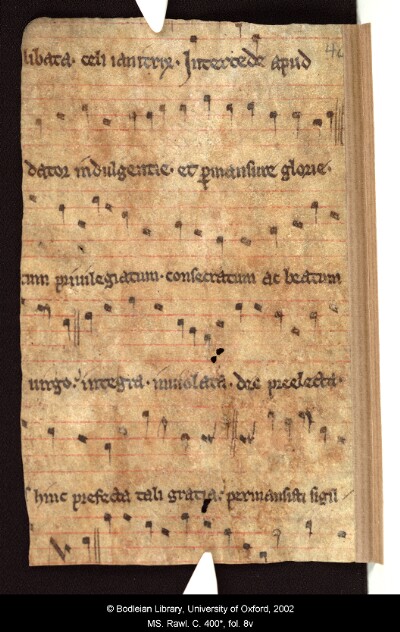 libata. celi ianitrix. Intercede apud
dator indulgentie. et pmansure glorie.
um priuilegiatum. consecratum ac beatum
uirgo. integra. inuiolata. dīe preelecta.
hinc prefecta tali gratia. permansisti sigil
© Bodleian Library, University of Oxford, 2002
MS. Rawl. C. 400*, fol. 8v